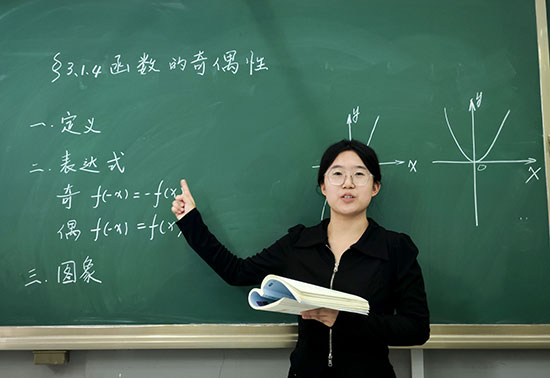 §3.1.4 函数的奇偶性
一.定义
二.表达式
奇 f(-x)=-f(x
偶 f(-x)=f(x)
三.图象
y
x
y
0
x